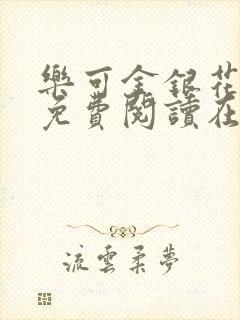 樂可金銀花
免費閱讀在
流雲柔夢